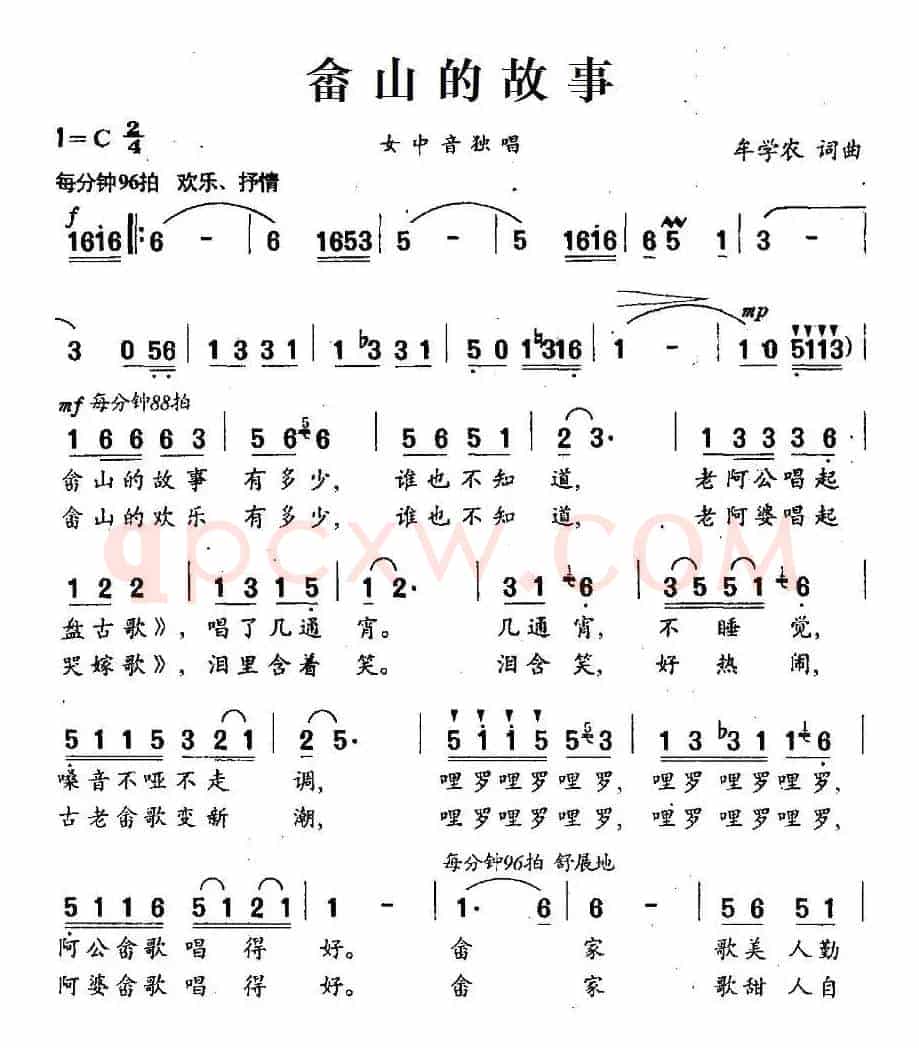 畲山的故事
1=C 2/4
女中音独唱
牟学农 词曲
每分钟96拍 欢乐、抒情
f
1616 |: 6 - | 6 1653 | 5 - | 5 1616 | 6 5 1 | 3 - |
mp
3 0 56 | 1 3 3 1 | 1 b3 3 1 | 5 0 1 ♮316 | 1 - | 1 0 5113) |
mf 每分钟88拍
1 6 6 6 3 | 5 6 5 6 | 5 6 5 1 | 2 3· | 1 3 3 3 6 |
畲山的故事 有多少, 谁也不知 道, 老阿公唱起
畲山的欢乐 有多少, 谁也不知 道, 老阿婆唱起
qpcxw.com
1 2 2 | 1 3 1 5 | 1 2· | 3 1 1 6 | 3 5 5 1 1 6 |
盘古歌》, 唱了几通 宵。 几通宵, 不睡觉,
哭嫁歌》, 泪里含着 笑。 泪含笑, 好热闹,
5 1 1 5 3 2 1 | 2 5· | 5 1 1 5 5 5 3 | 1 3 b3 1 1 1 6 |
嗓音不哑不走 调, 哩罗哩罗哩罗, 哩罗哩罗哩罗,
古老畲歌变新 潮, 哩罗哩罗哩罗, 哩罗哩罗哩罗,
每分钟96拍 舒展地
5 1 1 6 5 1 2 1 | 1 - | 1· 6 | 6 - | 5 6 5 1 |
阿公畲歌 唱得 好。 畲 家 歌美人勤
阿婆畲歌 唱得 好。 畲 家 歌甜人自